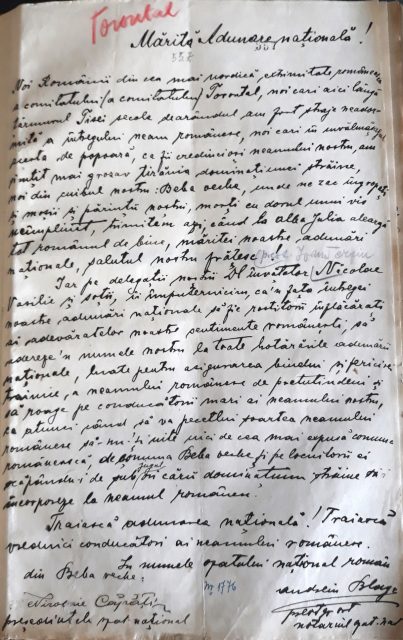 Torontal
Mărită Adunare națională!
Noi Românii din cea mai nordică extremitate românească
a comitatului (a comitatului) Torontal, noi cari aici lângă
țărmurul Tisei secole dearândul am fost straje neador-
mită a întregului neam românesc, noi cari în învălmășagul
acesta de popoară, ca fii credincioși neamului nostru, am
simțit mai grozav tirănia dominațiunei străine,
noi din cuibul nostru: Beba veche, unde ne zac îngropați
și moșii și părinții noștri, morți cu dorul unui vis
neîmplinit, trimitem azi, când la Alba Iulia aleargă
tot românul de bine, măritei noastre adunări
naționale, salutul nostru frățesc
Iar pe delegații noștri Dl învățător Nicolae
Vasilie și soții, îi împuternicim, ca'n fața întregei
noastre adunări naționale să fie rostitorii înflăcărați
ai adevăratelor noastre sentimente românești, să
adereze'n numele nostru la toate hotărârile adunării
naționale, luate pentru asigurarea binelui și fericirei
trainice, a neamului românesc de pretutindeni și
să roage pe conducătorii mari ai neamului nostru,
ca atunci când să va pecetlui soartea neamului
românesc să nu-și uite nici de cea mai expusă comună
românească, de comuna Beba veche, și pe locuitorii ei
scăpându-i de sub jugul ori cărei dominațiuni străine să-i
încorporeze la neamul românesc.
Traiască adunarea națională! Traiască
vrednicii conducători ai neamului românesc.
În numele sfatului național român
din Beba veche:
președintele sfat. național
notarul sfat. naț.